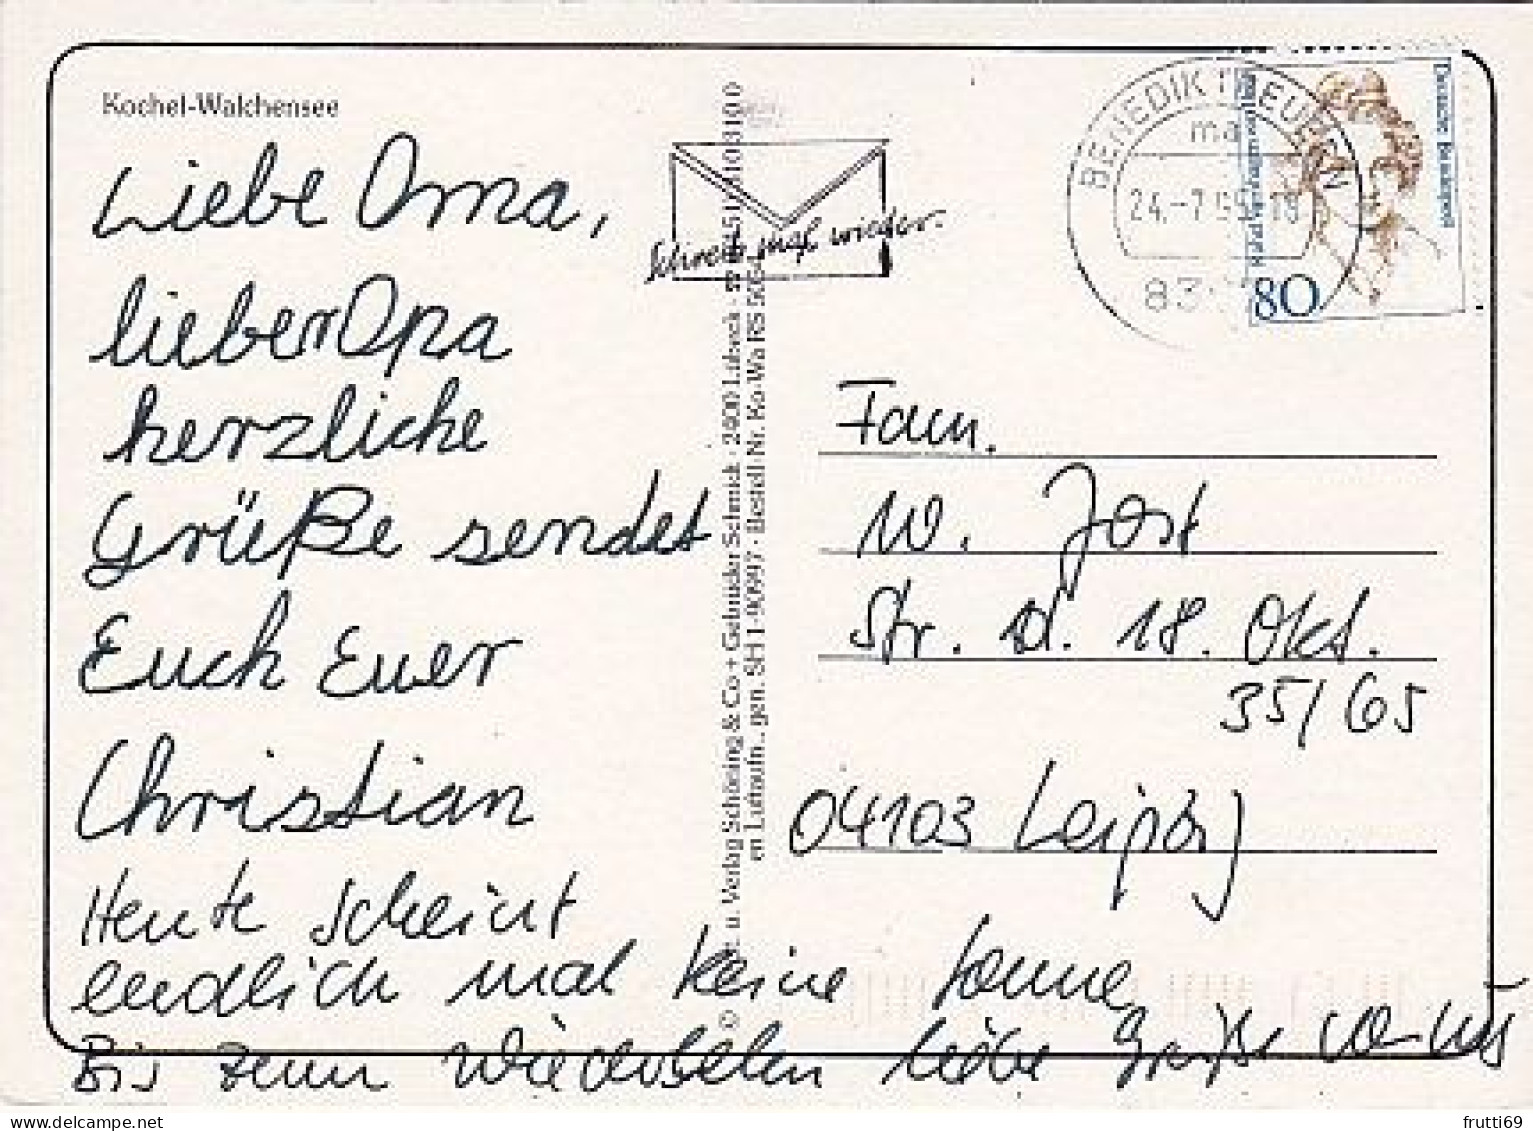 Kochel-Walchensee
Liebe Oma,
lieber Opa
herzliche
Grüße sendet
Euch Euer
Christian
Heute scheint
endlich mal keine Sonne
Bis zum Wiedersehen liebe Grüße von uns
Schreib mal wieder.
u. Verlag Schöning & Co + Gebrüder Schmidt · 2400 Lübeck ·
en Luftaufn.. gen. SH 1-90997 · Bestell-Nr. Ko-Wa RS
BENEDIKTBEUERN
24.-7.
80
Deutsche Bundespost
Fam.
W. Jost
Str. d. 18. Okt.
35/65
04103 Leipzig
frutti69